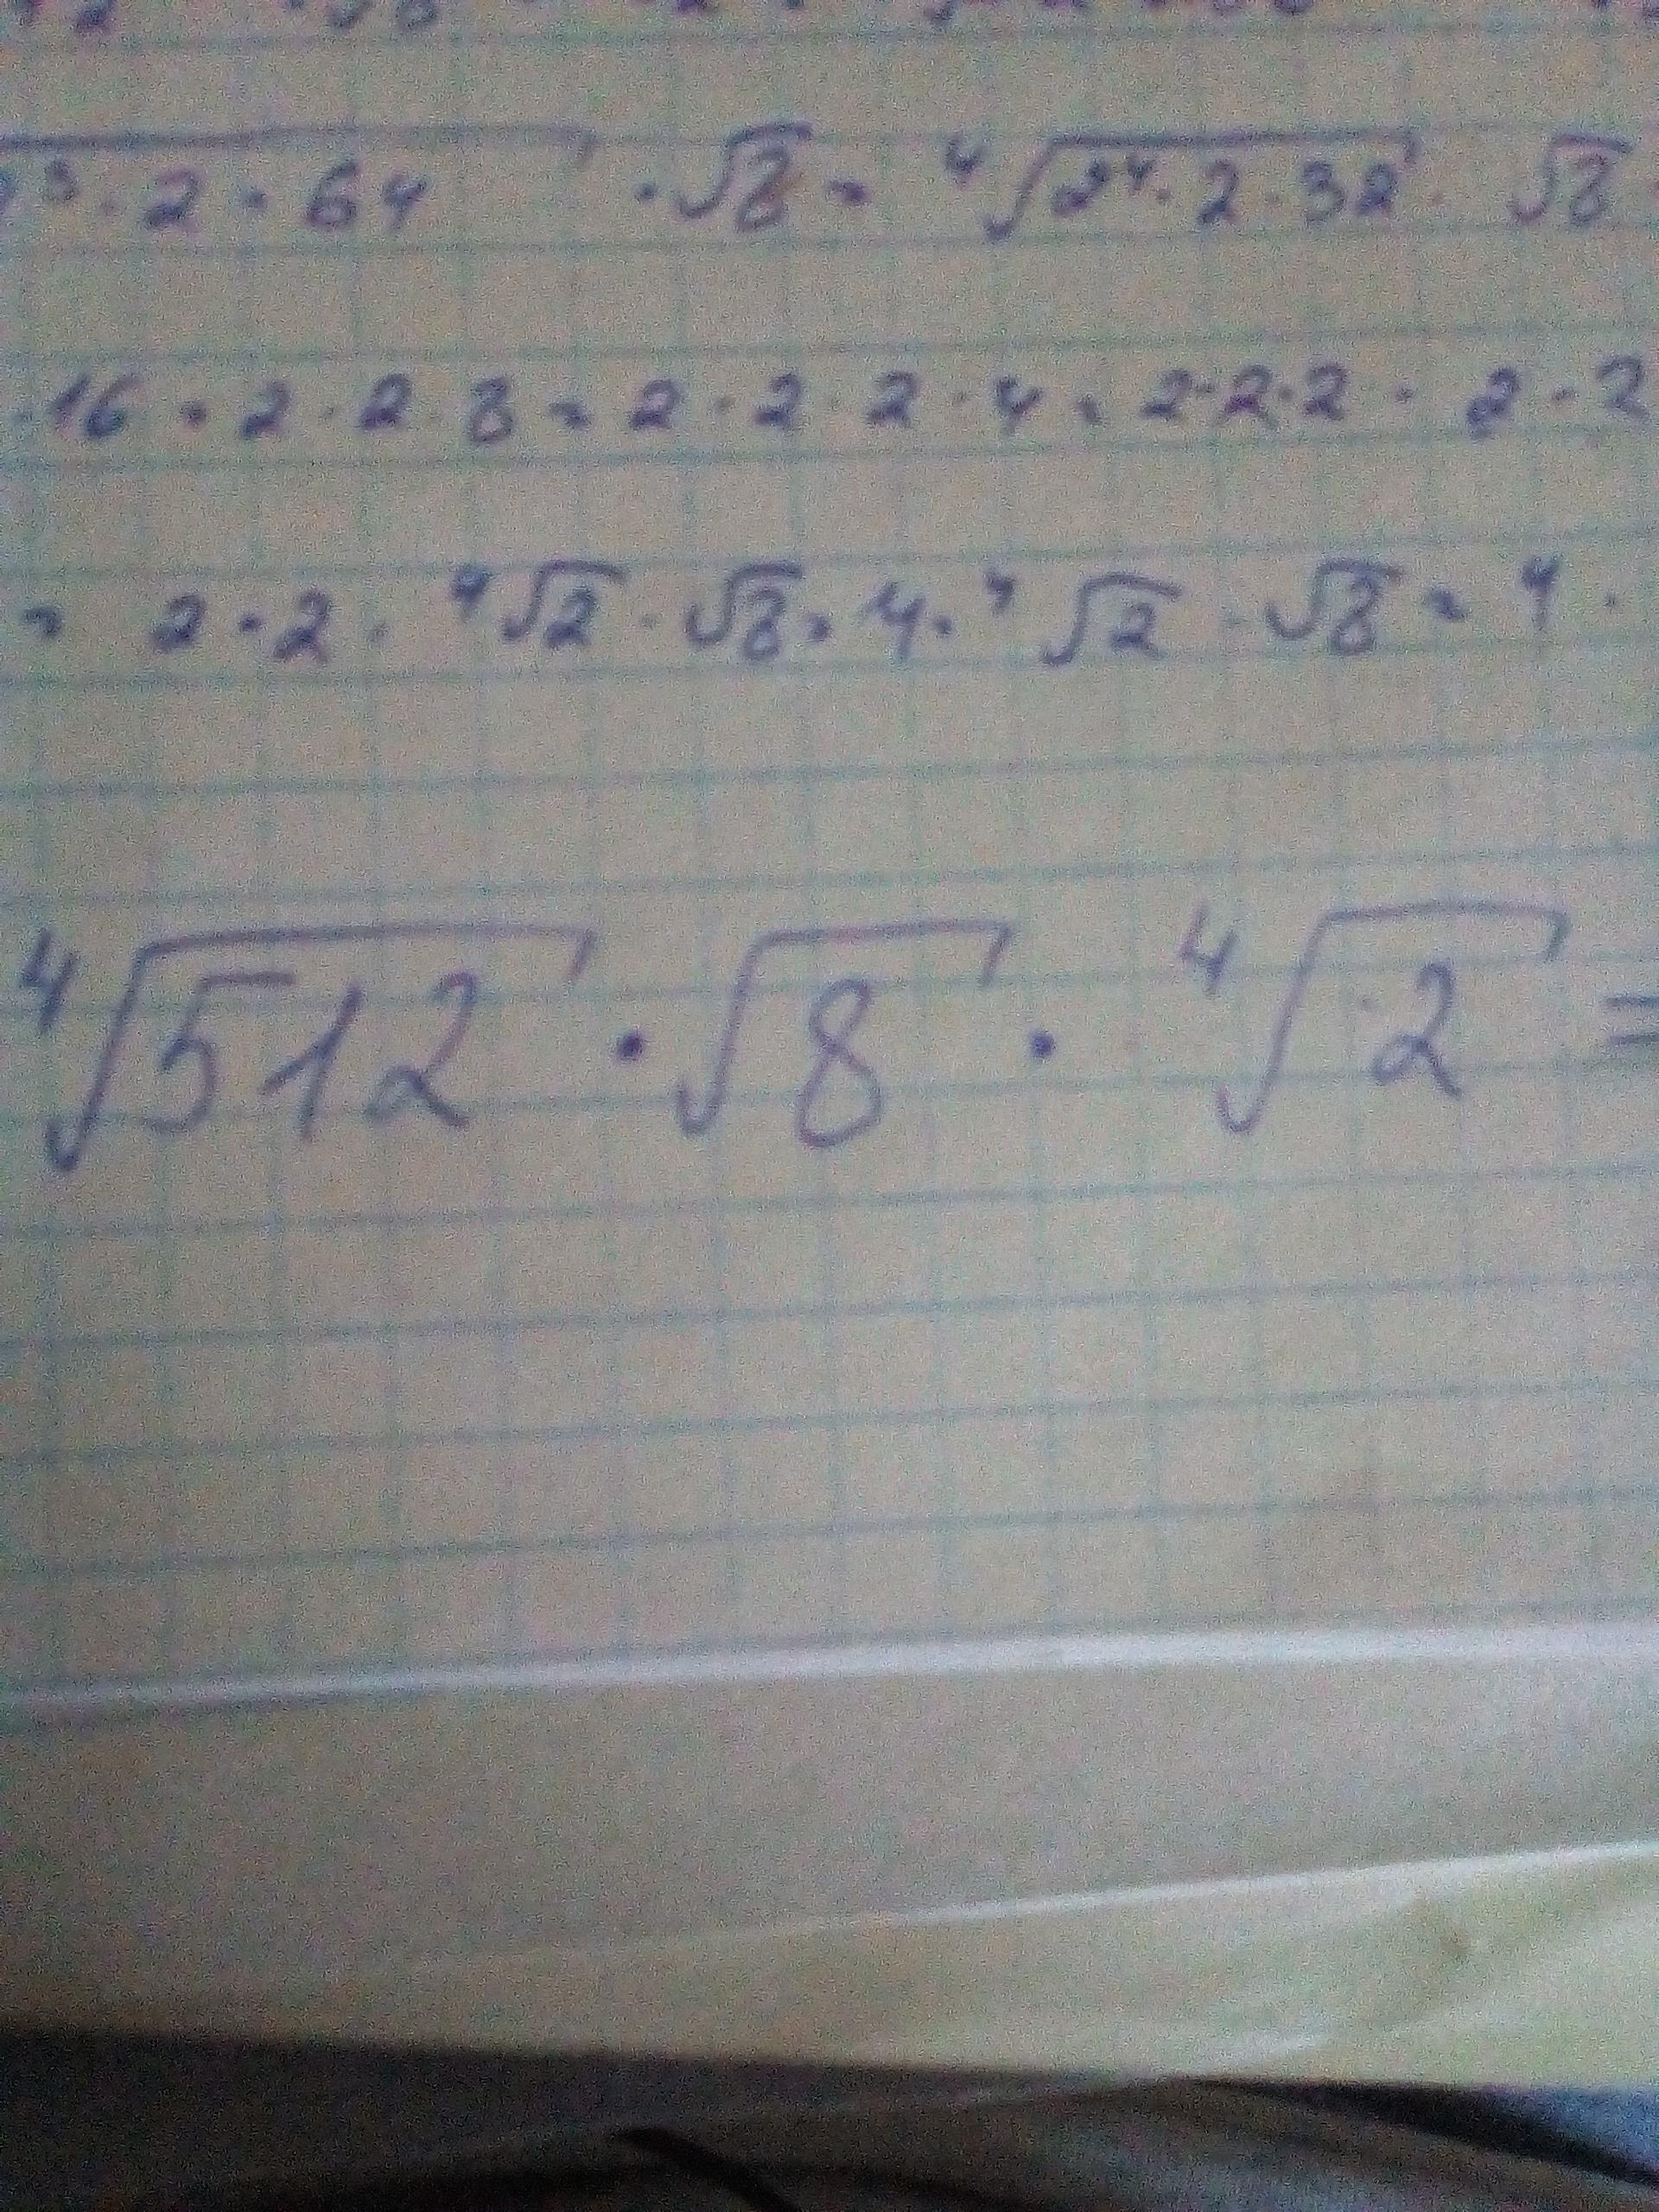 ³ · 2 · 64 · √8 = ⁴√2⁴ · 2 · 32 · √8
16 = 2 · 2 · 8 = 2 · 2 · 2 · 4 = 2 · 2 · 2 · 2 · 2
= 2 · 2 · ⁴√2 · √8 = 4 · ⁴√2 · √8 = 4 ·
⁴√512 · √8 · ⁴√2 =